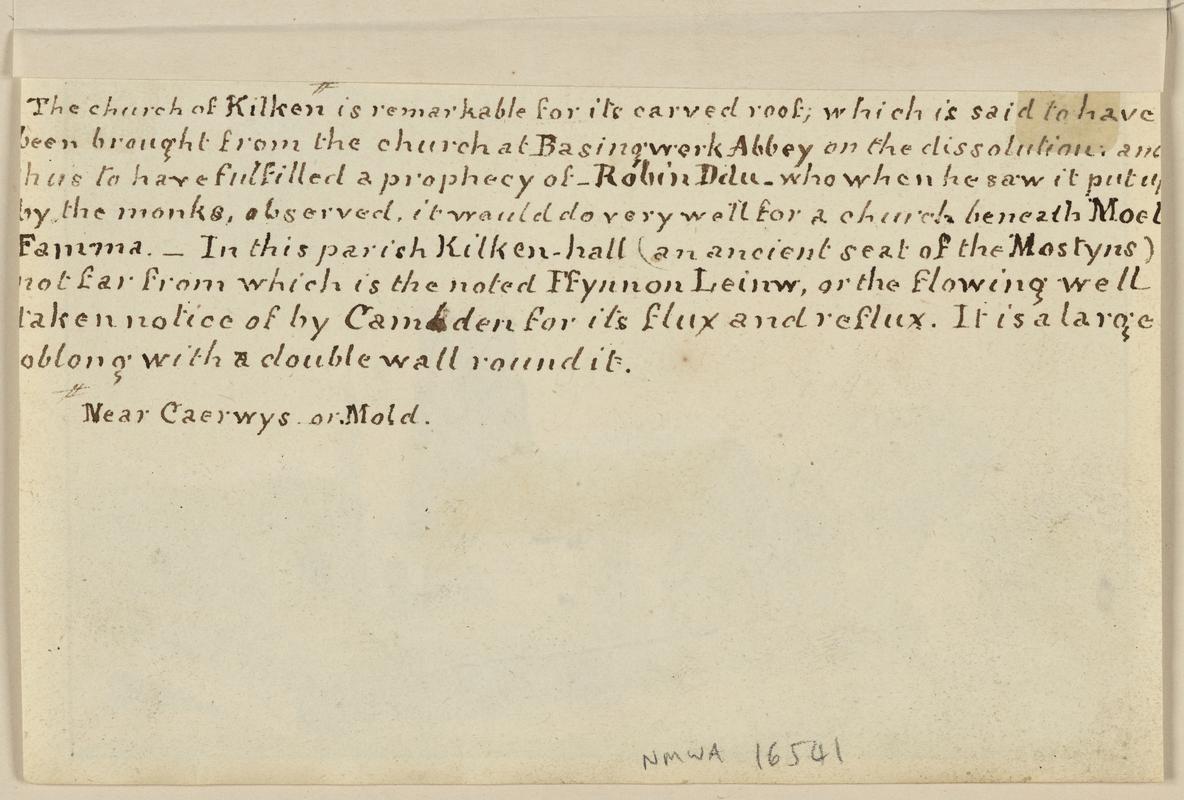 The church of Kilken # is remarkable for its carved roof; which is said to have
been brought from the church at Basingwerk Abbey on the dissolution: and
thus to have fulfilled a prophecy of - Robin Ddu - who when he saw it put up
by the monks, observed, it would do very well for a church beneath Moel
Famma. _ In this parish Kilken-hall (an ancient seat of the Mostyns)
not far from which is the noted Ffynnon Leinw, or the flowing well
taken notice of by Camden for its flux and reflux. It is a large
oblong with a double wall round it.
# Near Caerwys or Mold.
NMWA 16541